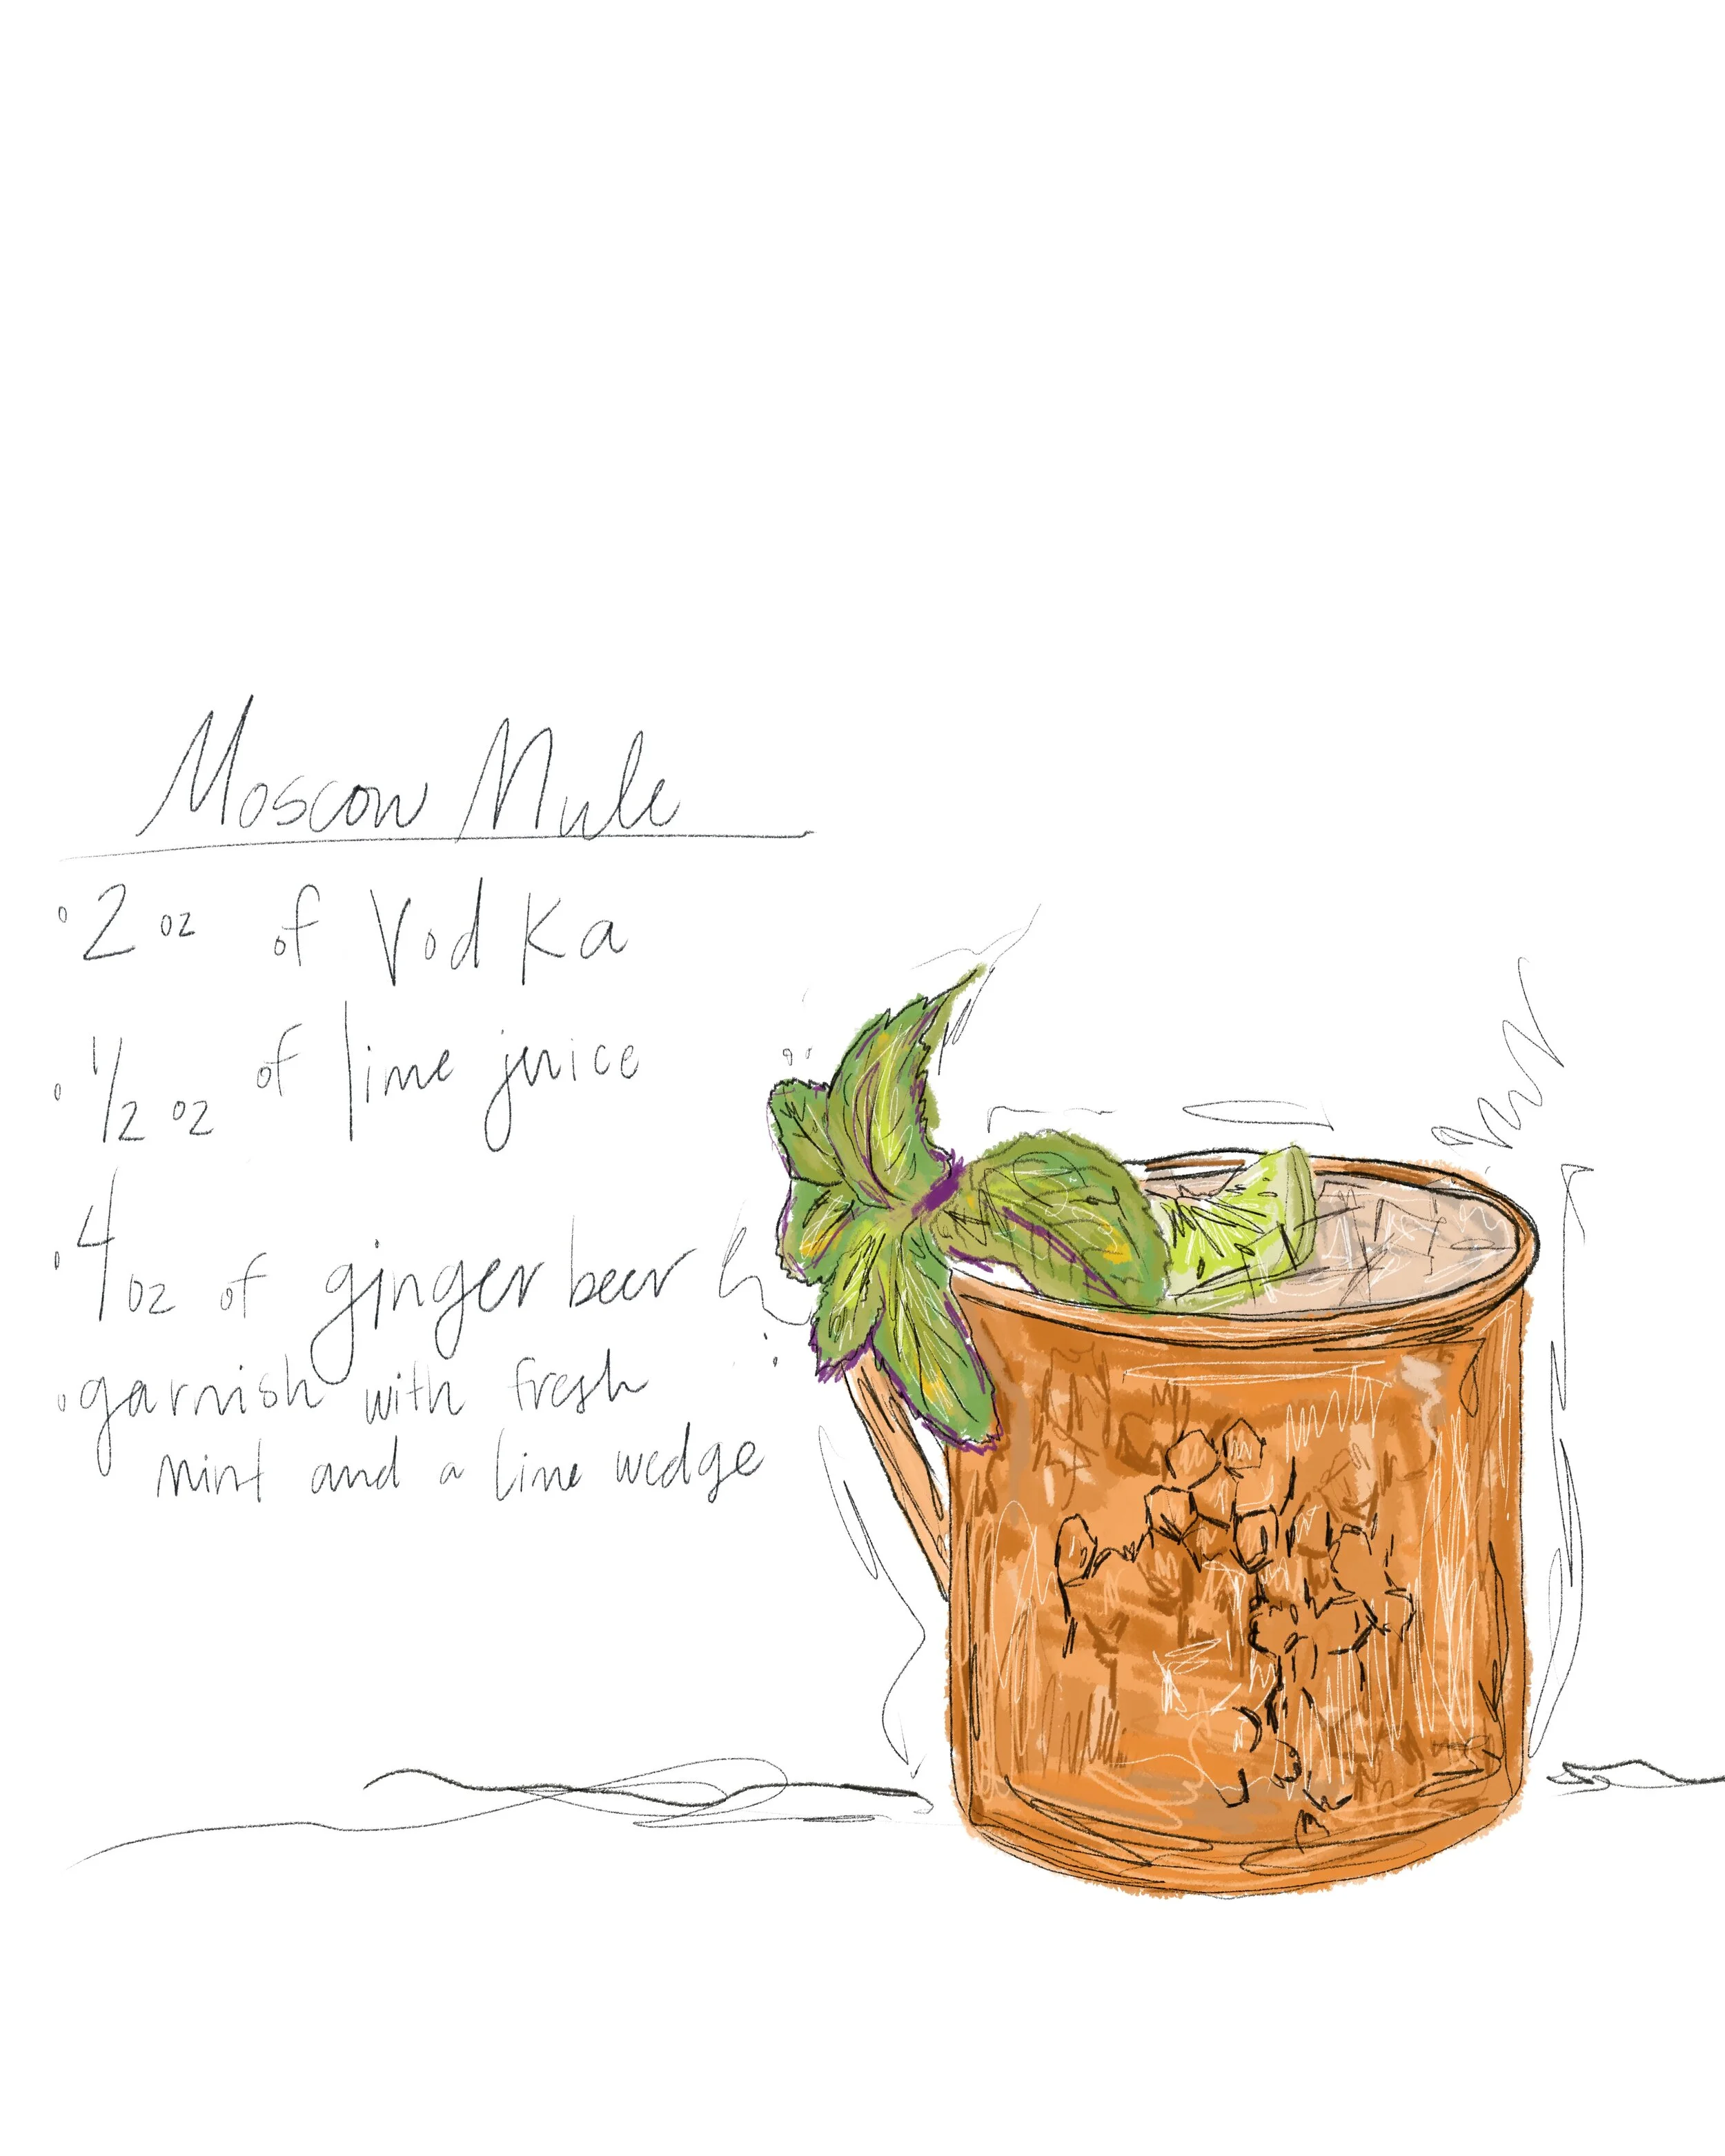 Moscow Mule
2 oz of Vodka
1/2 oz of lime juice
4 oz of ginger beer
garnish with fresh
mint and a lime wedge